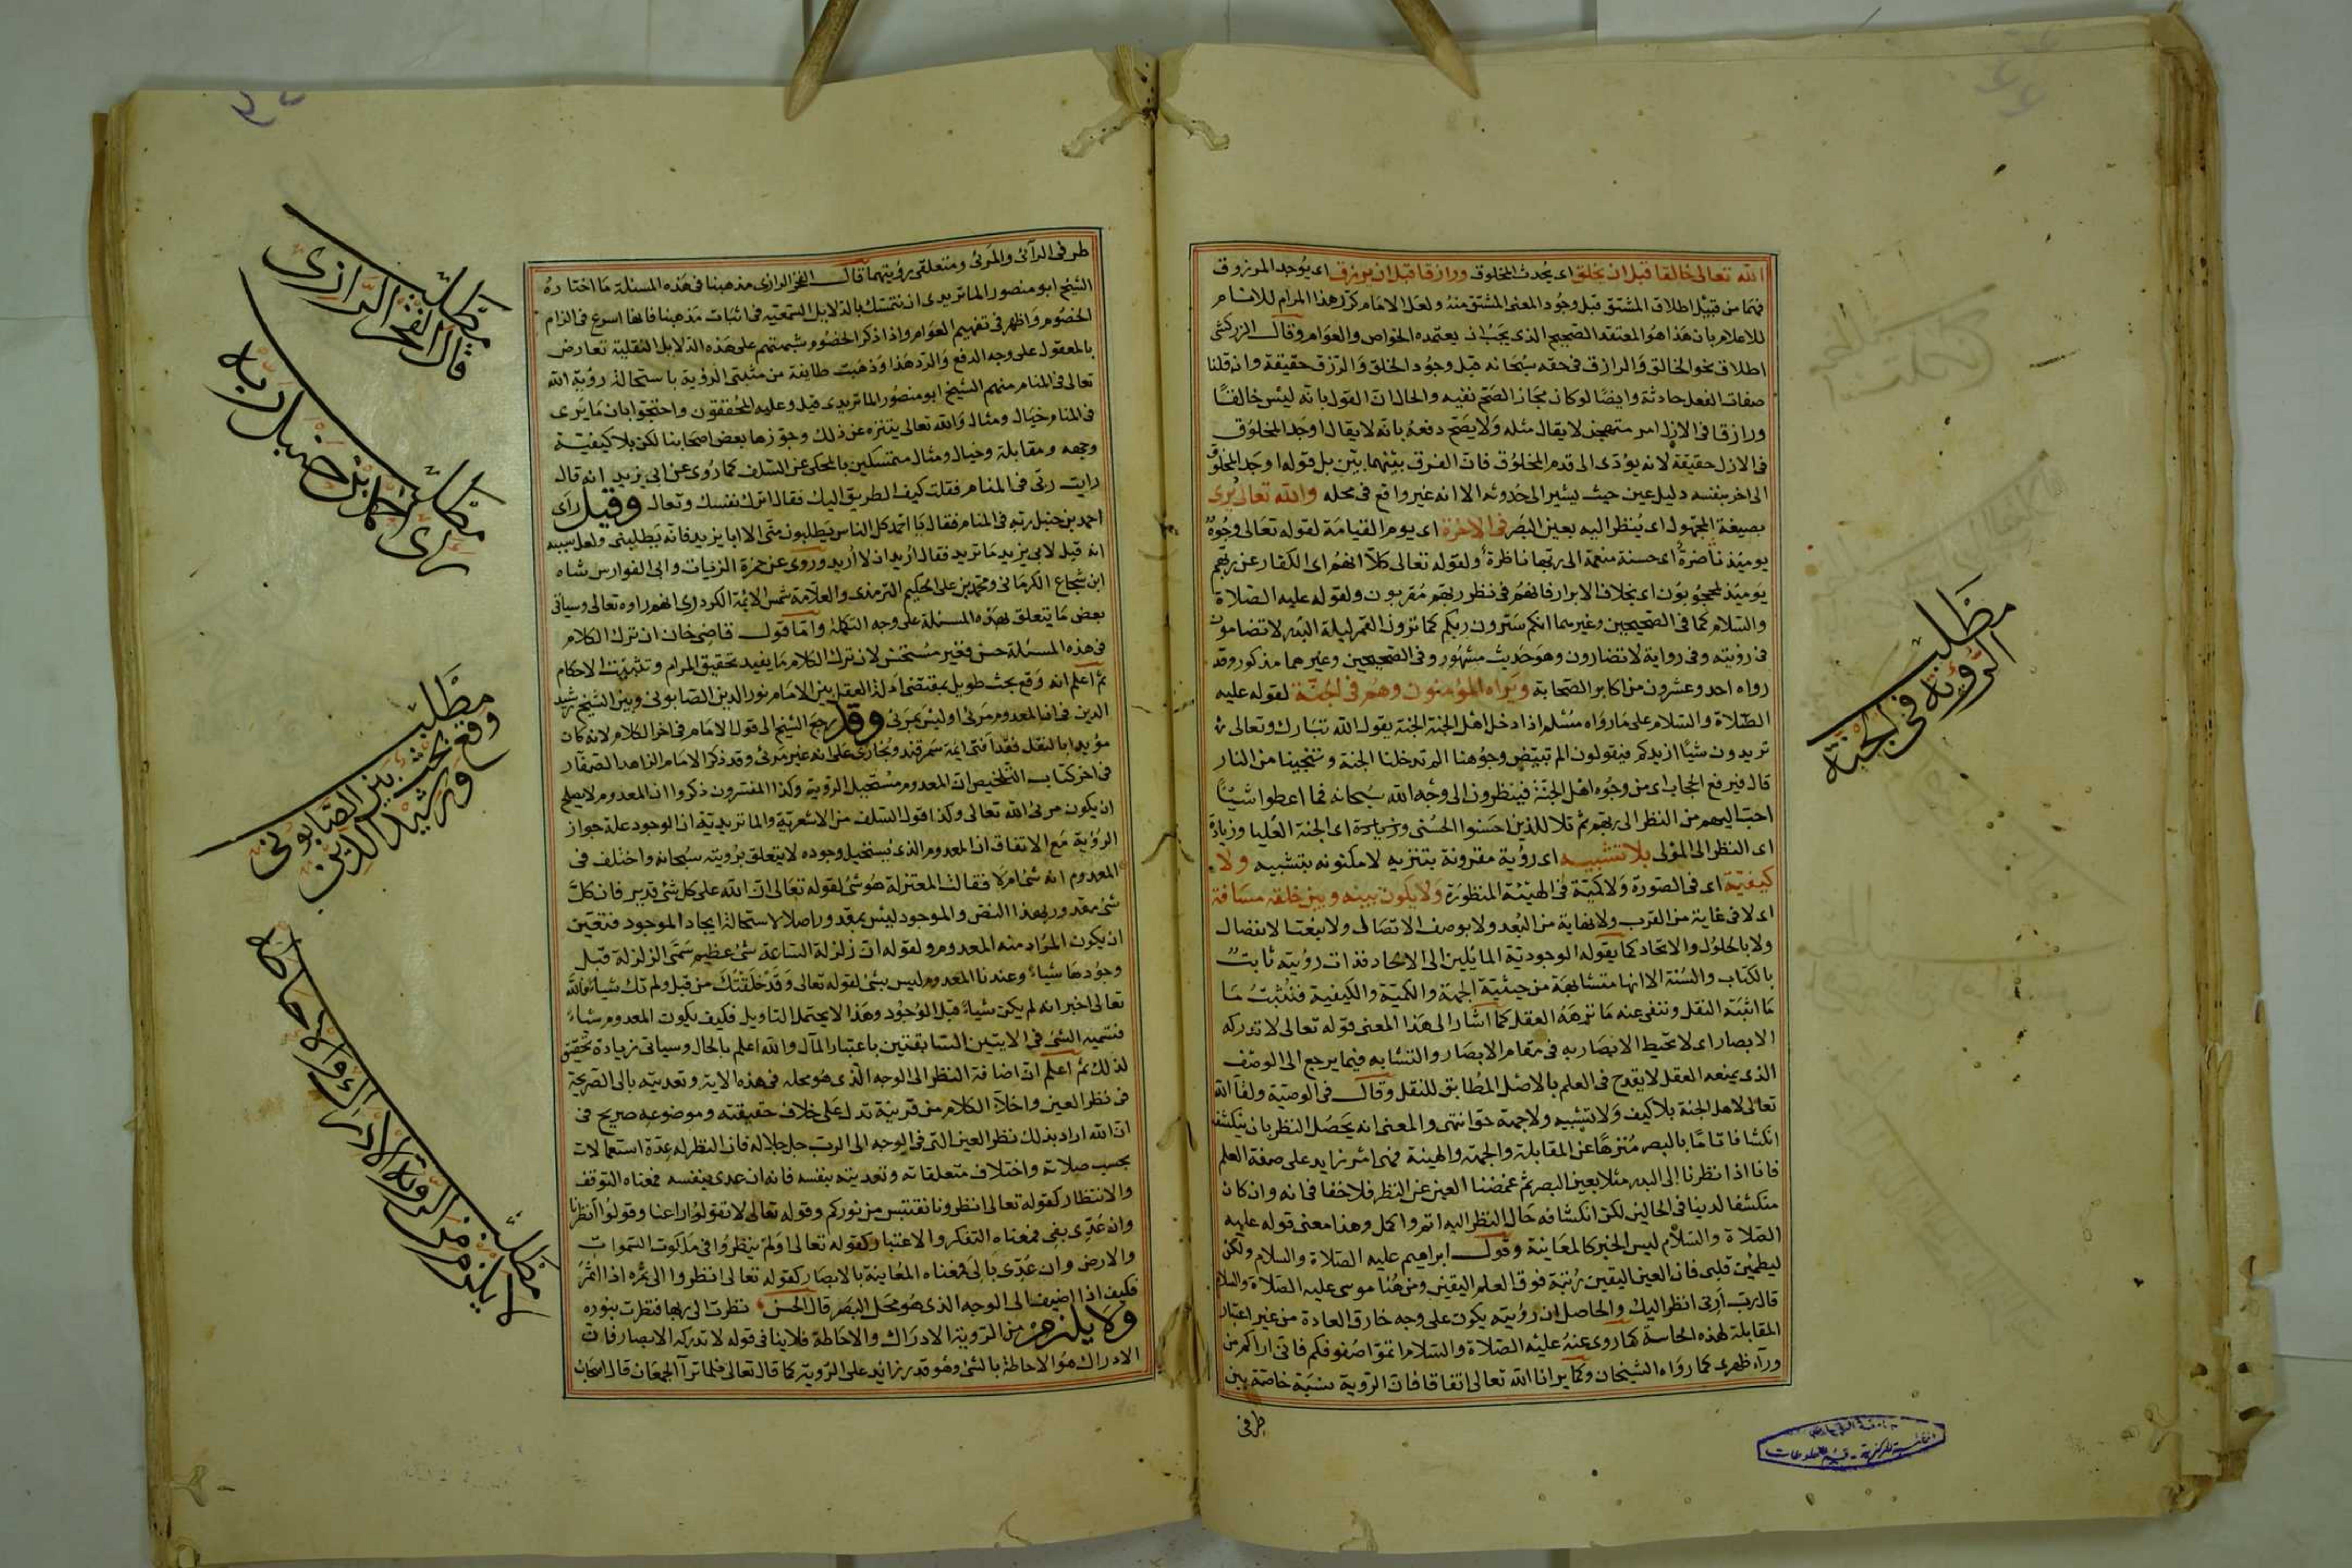 الله تعالى خالقا قبل ان يخلق اى يحدث المخلوق ورازقا قبل ان يرزق اى يوجد المرزوق
فهما من قبيل اطلاق المشتق قبل وجود المعنى المشتق منه ولعل الامام كرر هذا المرام للانام
للاعلام بان هذا هو المعتقد الصحيح الذى يجب ان يعتمده الخواص والعوام وقال الزركشى
اطلاق نحو الخالق والرازق فى حقه سبحانه قبل وجود الخلق والرزق حقيقة وان قلنا
صفات الفعل حادثة وايضا لو كان مجازا لصح نفيه والحال ان القول بانه ليس خالقا
ورازقا فى الازل امر مستهجن لا يقال مثله ولا يصح دفعه بانه لا يقال اوجد المخلوق
فى الازل حقيقة لانه يؤدى الى قدم المخلوق فان الفرق بينهما بين بل قوله اوجد المخلوق
الى اخر بنفسه دليل عين حيث يشير الى حدوثه الا انه غير واقع فى محله والله تعالى يرى
بصيغة المجهول اى ينظر اليه بعين البصر فى الاخرة اى يوم القيامة لقوله تعالى وجوه
يومئذ ناضرة اى حسنة منعمة الى ربها ناظرة ولقوله تعالى كلا انهم اى الكفار عن ربهم
يومئذ لمحجوبون اى بخلاف الابرار فانهم فى نظر ربهم مقربون ولقوله عليه الصلاة
والسلام كما فى الصحيحين وغيرهما انكم سترون ربكم كما ترون القمر ليلة البدر لا تضامون
فى رؤيته وفى رواية لا تضارون وهو حديث مشهور وفى الصحيحين وغيرهما مذكور وقد
رواه احد وعشرون من اكابر الصحابة ويراه المؤمنون وهم فى الجنة لقوله عليه
الصلاة والسلام على ما رواه مسلم اذا دخل اهل الجنة الجنة يقول الله تبارك وتعالى
تريدون شيئا ازيدكم فيقولون الم تبيض وجوهنا الم تدخلنا الجنة وتنجينا من النار
قال فيرفع الحجاب اى من وجوه اهل الجنة فينظرون الى وجه الله سبحانه فما اعطوا شيئا
احب اليهم من النظر الى ربهم ثم تلا للذين احسنوا الحسنى وزيادة اى الجنة العليا وزيادة
اى النظر الى المولى بلا تشبيه اى رؤية مقرونة بتنزيه لا مكنونه بتشبيه ولا
كيفية اى فى الصورة ولا كمية فى الهيئة المنظورة ولا يكون بينه وبين خلقه مسافة
اى لا فى غاية من القرب ولا نهاية من البعد ولا بوصف الاتصال ولا بنعت الانفصال
ولا بالحلول والاتحاد كما يقوله الوجودية المائلين الى الاتحاد فذات رؤيته ثابت
بالكتاب والسنة الا انها متشابهة من حيثية الجهة والكمية والكيفية فنثبت ما
ما اثبته النقل وننفى عنه ما نزهه العقل كما اشار الى هذا المعنى قوله تعالى لا تدركه
الابصار اى لا تحيط الابصار به فى مقام الابصار والتشابه فيما يرجع الى الوصف
الذى يمنعه العقل لا يقدح فى العلم بالاصل المطابق للنقل وقال فى الوصية ولقاء الله
تعالى لاهل الجنة بلا كيف ولا تشبيه ولا جهة حق انتهى والمعنى انه يحصل النظر بان ينكشف
انكشافا تاما بالبصر منزها عن المقابلة والجهة والهيئة فهى امر زايد على صفة العلم
فانا اذا نظرنا الى البدر مثلا بعين البصر ثم غمضنا العين عن النظر فلا خفا فى انه وان كان
منكشفا لدينا فى الحالين لكن انكشافه حال النظر اليه اتم واكمل وهذا معنى قوله عليه
الصلاة والسلام ليس الخبر كالمعاينة وقول ابراهيم عليه الصلاة والسلام ولكن
ليطمئن قلبى فان العين اليقين رتبة فوق العلم اليقين ومن هنا موسى عليه الصلاة والسلام
قال رب ارنى انظر اليك والحاصل ان رؤيته يكون على وجه خارق العادة من غير اعتبار
المقابلة لهذه الحاسة كما روى عنه عليه الصلاة والسلام اتموا صفوفكم فانى اراكم من
وراء ظهرى كما رواه الشيخان وكما يرانا الله تعالى اتفاقا فان الرؤية نسبة خاصة بين
طرفى
مطلب
الرؤية فى الجنة
طرفى الرآئى والمرئى ومتعلقى رؤيتهما قال الفخر الرازى مذهبنا فى هذه المسئلة ما اختاره
الشيخ ابو منصور الماتريدى ان نتمسك بالدلايل السمعيه فى اثبات مذهبنا فانها اسرع فى الزام
الخصوم واظهر فى تفهيم العوام واذا ذكر الخصوم شبهتهم على هذه الدلايل النقلية تعارض
بالمعقول على وجه الدفع والرد هذا وذهبت طايفة من مثبتى الرؤية باستحالة رؤية الله
تعالى فى المنام منهم الشيخ ابو منصور الماتريدى قيل وعليه المحققون واحتجوا بان ما يرى
فى المنام خيال ومثال والله تعالى يتنزه عن ذلك وجوزها بعض اصحابنا لكن بلا كيفية
وجهه ومقابلة وخيال ومثال متمسكين بالمحكى عن السلف كما روى عن ابى يزيد انه قال
رايت ربى فى المنام فقلت كيف الطريق اليك فقال اترك نفسك وتعال وقيل راى
احمد بن حنبل ربه فى المنام فقال يا احمد كل الناس يطلبون منى الا ابا يزيد فانه يطلبنى ولعل سببه
انه قيل لابى يزيد ما تريد فقال اريد ان لا اريد وروى عن حمزة الزيات وابى الفوارس شاه
ابن شجاع الكرمانى ومحمد بن على الحكيم الترمذى والعلامة شمس الائمة الكردرى انهم راوه تعالى وسياتى
بعض ما يتعلق بهذه المسئلة على وجه التكملة واما قول قاضى خان ان ترك الكلام
فى هذه المسئلة حسن فغير مستحسن لان ترك الكلام ما يفيد تحقيق المرام وتثبيت الاحكام
ثم اعلم انه وقع بحث طويل بمقتضى ادلة العقل بين الامام نور الدين الصابونى وبين الشيخ رشيد
الدين فى ان المعدوم مرئى او ليس بمرئى وقد رجع الشيخ الى قول الامام فى اخر الكلام لانه كان
مؤيدا بالنقل فقد افتى ايمة سمرقند وبخارى على انه غير مرئى وقد ذكر الامام الزاهد الصفار
فى اخر كتاب التلخيص ان المعدوم مستحيل الرؤية وكذا المفسرون ذكروا ان المعدوم لا يصلح
ان يكون مرئى الله تعالى وكذا قول السلف من الاشعرية والماتريدية ان الوجود علة جواز
الرؤية مع الاتفاق ان المعدوم الذى يستحيل وجوده لا يتعلق برؤيته سبحانه واختلف فى
المعدوم انه شئ ام لا فقالت المعتزلة هو شئ لقوله تعالى ان الله على كل شئ قدير فان كل
شئ مقدور بهذا النص والموجود ليس بمقدور اصلا لاستحالة ايجاد الموجود فتعين
ان يكون المراد منه المعدوم ولقوله ان زلزلة الساعة شئ عظيم سمى الزلزلة قبل
وجودها شياء وعندنا المعدوم ليس بشئ لقوله تعالى وقد خلقتك من قبل ولم تك شياء فالله
تعالى اخبر انه لم يكن شياء قبل الوجود وهذا لا يحتمل التاويل فكيف يكون المعدوم شياء
فتسميه الشئ فى الايتين السابقتين باعتبار المآل والله اعلم بالحال وسياتى زيادة تحقيق
لذلك ثم اعلم ان اضافة النظر الى الوجه الذى هو محله فى هذه الاية وتعديته بالى الصريحة
فى نظر العين واخلاء الكلام من قرينة تدل على خلاف حقيقته وموضوعه صريح فى
ان الله اراد بذلك نظر العين التى فى الوجه الى الرب جل جلاله فان النظر له عدة استعمالات
بحسب صلاته واختلاف متعلقاته وتعديته بنفسه فانه ان عدى بنفسه فمعناه التوقف
والانتظار كقوله تعالى انظرونا نقتبس من نوركم وقوله تعالى لا تقولوا راعنا وقولوا انظرنا
وان عدى بفى فمعناه التفكر والاعتبار كقوله تعالى اولم ينظروا فى ملكوت السموات
والارض وان عدى بالى فمعناه المعاينة بالابصار كقوله تعالى انظروا الى ثمره اذا اثمر
فكيف اذا اضيف الى الوجه الذى هو محل البصر قال الحسن نظرت الى ربها فنظرت بنوره
ولا يلزم من الرؤية الادراك والاحاطة فلا ينافى قوله لا تدركه الابصار فان
الادراك هو الاحاطة بالشئ وهو قدر زايد على الرؤية كما قال تعالى فلما تراآ الجمعان قال اصحاب
مطلب
قال الفخر الرازى
مطلب
راى احمد بن حنبل ربه
مطلب
وقع بحث بين الصابونى
ورشيد الدين
مطلب
لا يلزم من الرؤية الادراك والاحاطه